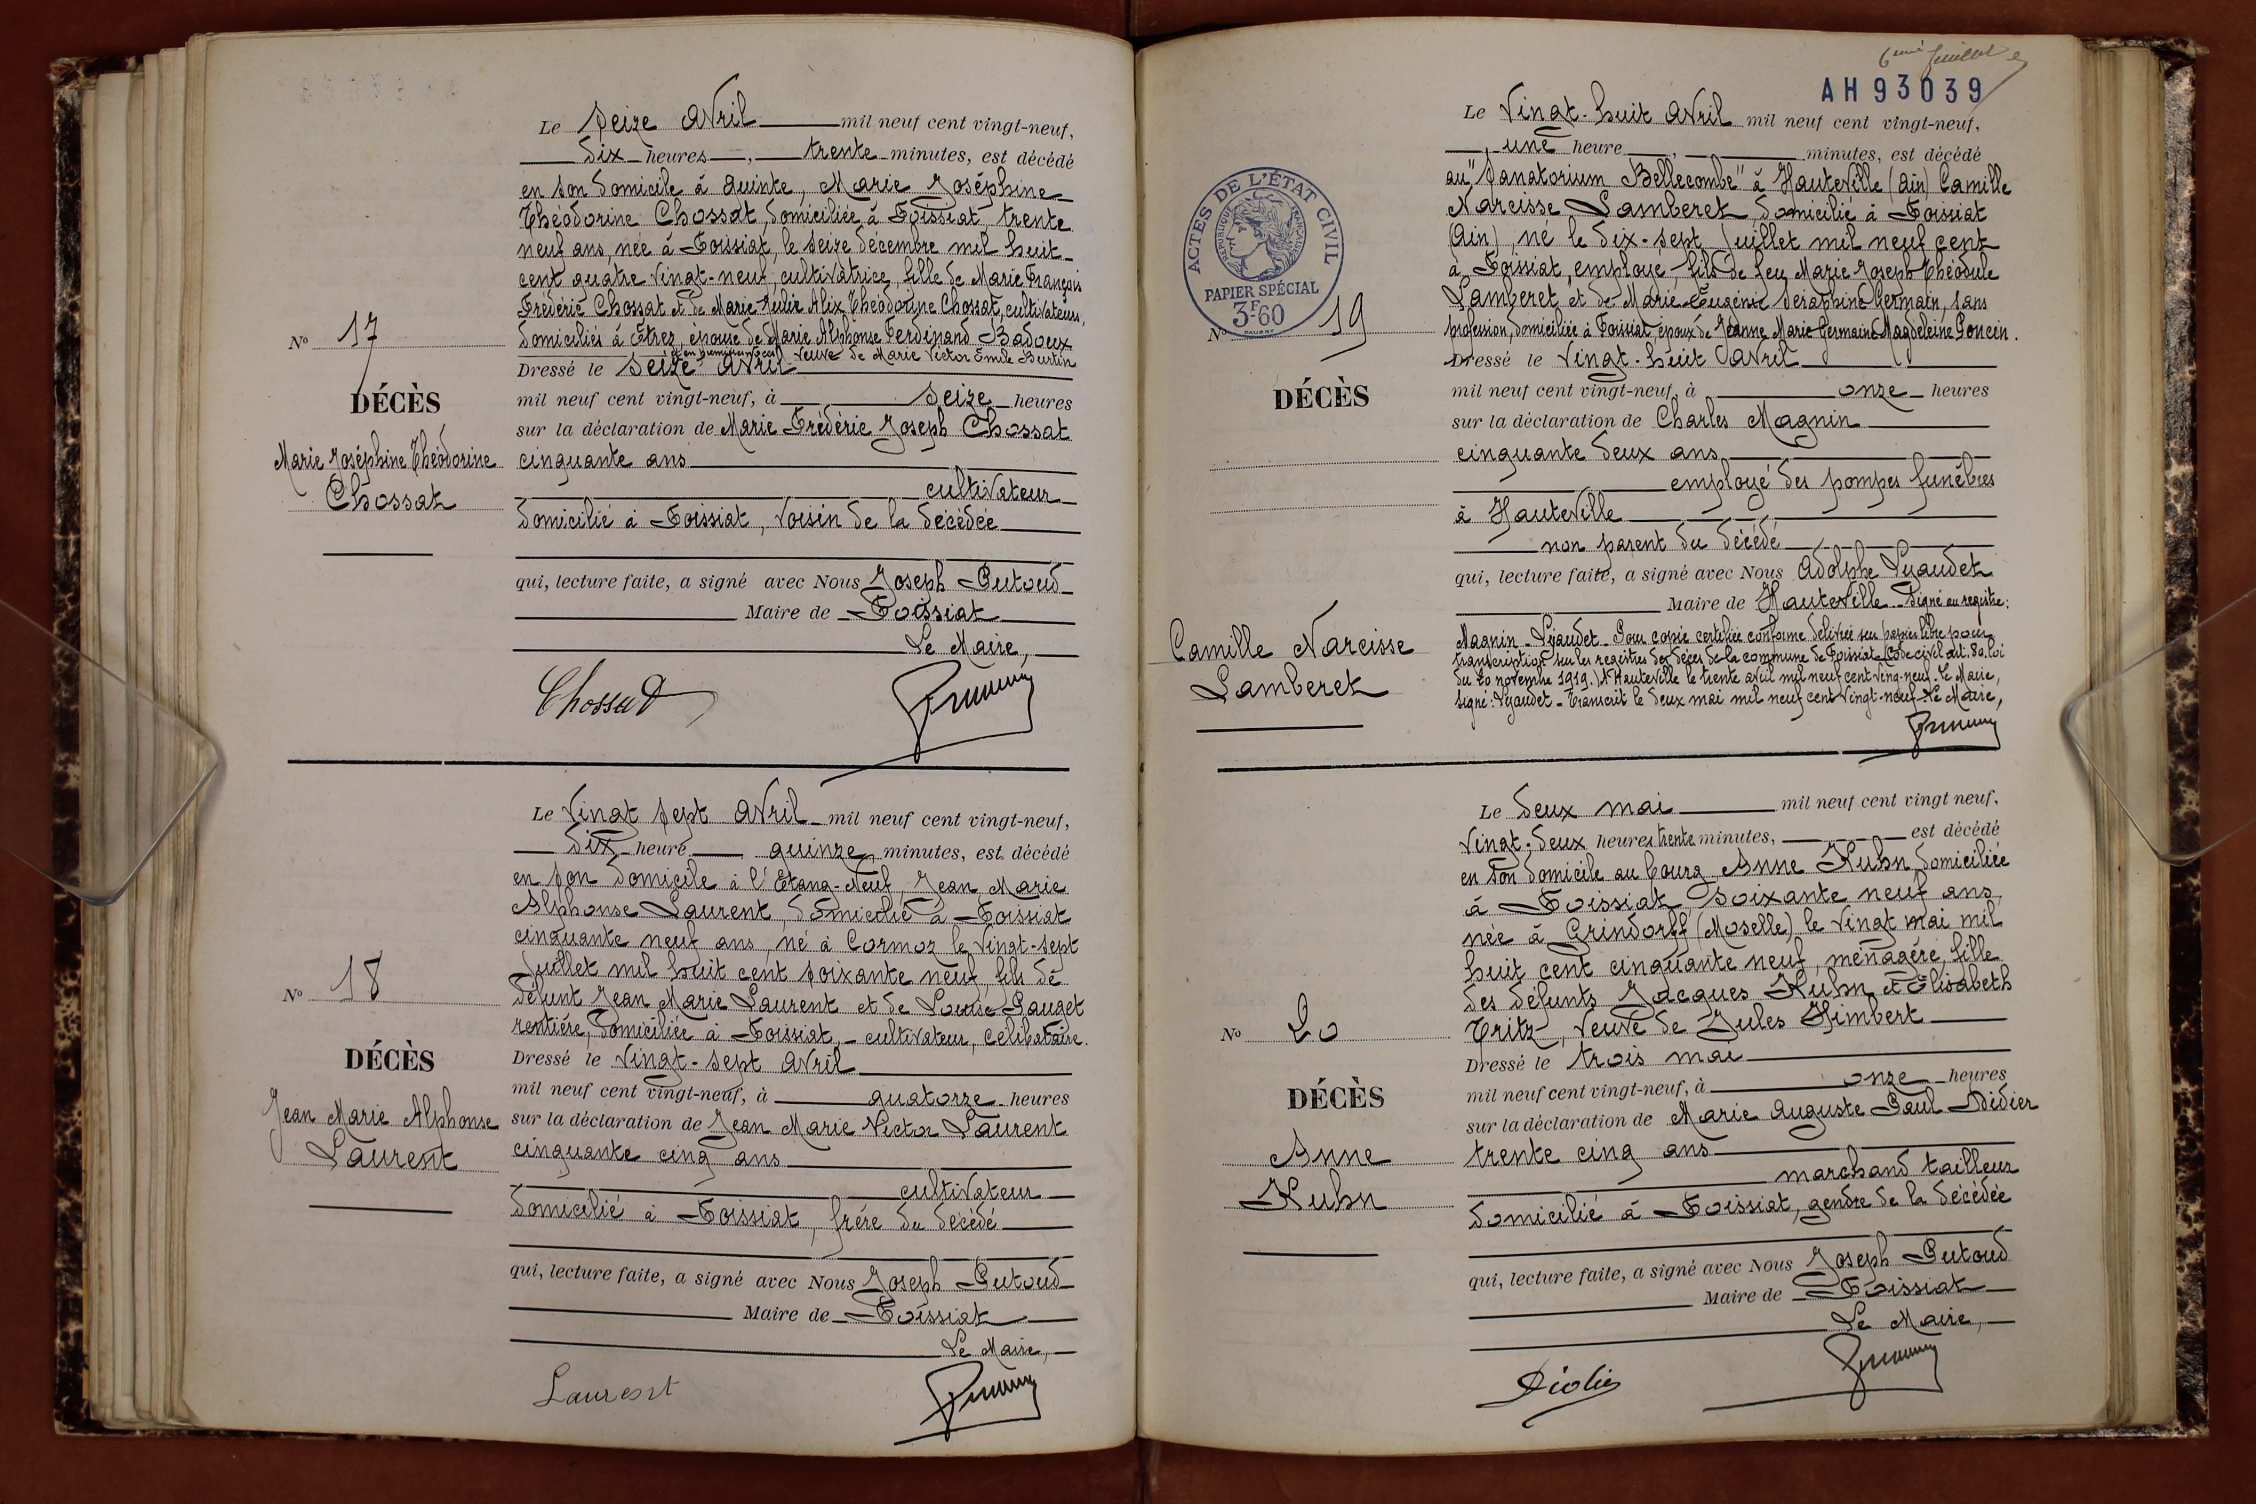 Le seize avril mil neuf cent vingt-neuf,
dix heures, trente minutes, est décédé
en son domicile à Quinte, Marie Joséphine
Théodorine Chossat, domiciliée à Foissiat, trente
neuf ans, née à Foissiat, le seize décembre mil huit
cent quatre vingt-neuf, cultivatrice, fille de Marie François
Frédéric Chossat et de Marie Alix Théodorine Chossat, cultivateurs,
domiciliés à Étrez, épouse de Marie Alphonse Ferdinand Badoux
veuve de Marie Victor Emile Burtin
Dressé le seize avril
mil neuf cent vingt-neuf, à seize heures
sur la déclaration de Marie Frédéric Joseph Chossat
cinquante ans
cultivateur
domicilié à Foissiat, voisin de la décédée
qui, lecture faite, a signé avec Nous Joseph Putoud
Maire de Foissiat
Le Maire,
Chossat
No 17
DÉCÈS
Marie Joséphine Théodorine
Chossat
Le vingt sept avril mil neuf cent vingt-neuf,
dix heure quinze minutes, est décédé
en son domicile à l'Étang-Neuf, Jean Marie
Alphonse Laurent, domicilié à Foissiat
cinquante neuf ans, né à Cormoz le vingt-sept
juillet mil huit cent soixante neuf, fils de
défunt Jean Marie Laurent et de Louise Pauget
rentière, domiciliée à Foissiat, - cultivateur, célibataire.
Dressé le vingt-sept avril
mil neuf cent vingt-neuf, à quatorze heures
sur la déclaration de Jean Marie Victor Laurent
cinquante cinq ans
cultivateur
domicilié à Foissiat, frère du décédé
qui, lecture faite, a signé avec Nous Joseph Putoud
Maire de Foissiat
Le Maire,
Laurent
No 18
DÉCÈS
Jean Marie Alphonse
Laurent
6ème feuillet
AH93039
Le vingt-huit avril mil neuf cent vingt-neuf,
une heure, minutes, est décédé
au "Sanatorium Bellecombe" à Hauteville (Ain) Camille
Narcisse Lamberet, domicilié à Foissiat
(Ain), né le dix-sept juillet mil neuf cent
à Foissiat, employé, fils de feu Marie Joseph Théodule
Lamberet et de Marie Eugénie Séraphine Germain, sans
profession, domiciliée à Foissiat, époux de Jeanne Marie Germaine Magdeleine Poncin.
Dressé le vingt-huit avril
mil neuf cent vingt-neuf, à onze heures
sur la déclaration de Charles Magnin
cinquante deux ans
employé des pompes funèbres
à Hauteville
non parent du décédé
qui, lecture faite, a signé avec Nous Adolphe Lyaudet
Maire de Hauteville. Signé au registre:
Magnin - Lyaudet - Pour copie certifiée conforme délivrée sur papier libre pour
transcription sur les registres des décès de la commune de Foissiat (Code civil art. 80. loi
du 20 novembre 1919.) A Hauteville le trente avril mil neuf cent vingt-neuf. Le Maire,
signé: Lyaudet - Transcrit le deux mai mil neuf cent vingt-neuf - Le Maire,
ACTES DE L'ÉTAT CIVIL
RÉPUBLIQUE FRANÇAISE
PAPIER SPÉCIAL
3F60
No 19
DÉCÈS
Camille Narcisse
Lamberet
Le deux mai mil neuf cent vingt neuf,
vingt-deux heures trente minutes, est décédé
en son domicile au bourg Anne Kuhn, domiciliée
à Foissiat, soixante neuf ans,
née à Grindorff (Moselle) le vingt mai mil
huit cent cinquante neuf, ménagère, fille
des défunts Jacques Kuhn et Elisabeth
Tritz, veuve de Jules Himbert
Dressé le trois mai
mil neuf cent vingt-neuf, à onze heures
sur la déclaration de Marie Auguste Paul Didier
trente cinq ans
marchand tailleur
domicilié à Foissiat, gendre de la décédée
qui, lecture faite, a signé avec Nous Joseph Putoud
Maire de Foissiat
Le Maire,
No 20
DÉCÈS
Anne
Kuhn